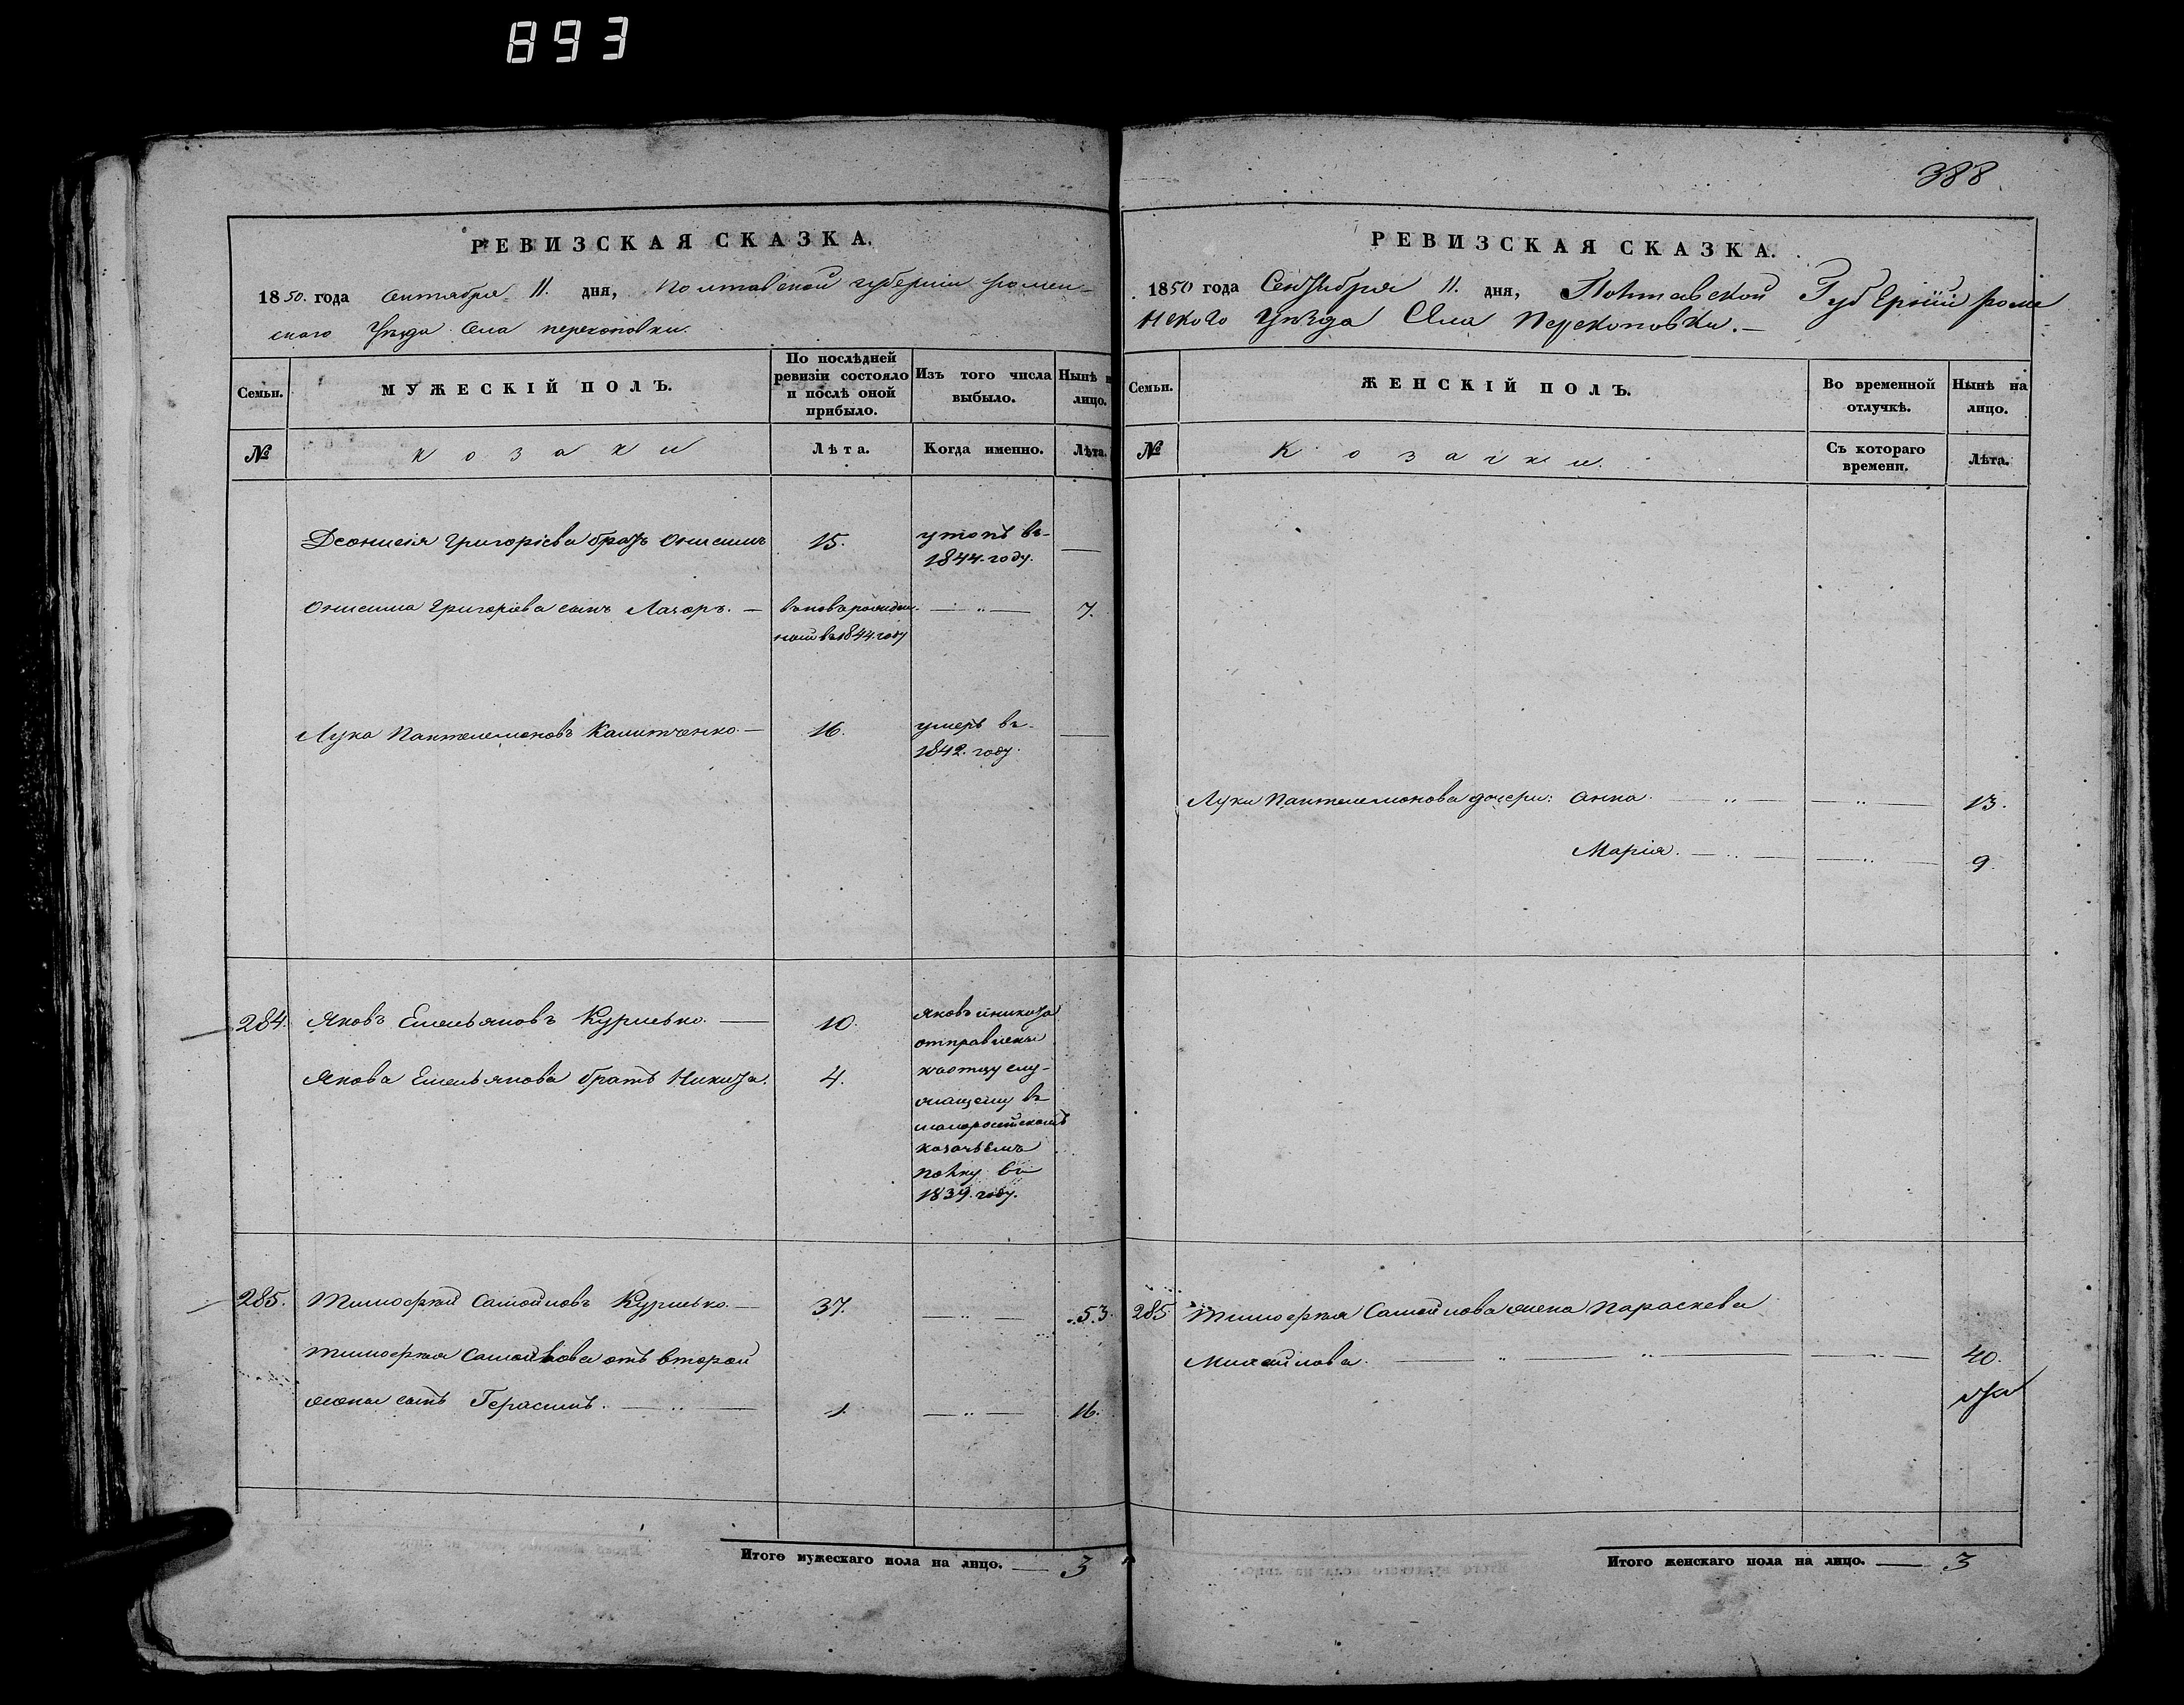 893
388
РЕВИЗСКАЯ СКАЗКА.
1850. года Сентября 11. дня, Полтавской губернiи ромен-
скаго уѣзда Села перекоповки.
Семьи.
МУЖЕСКIЙ ПОЛЪ.
По послѣдней
ревизiи состояло
и послѣ оной
прибыло.
Изъ того числа
выбыло.
Нынѣ н
лицо.
№
козаки
Лѣта.
Когда именно.
Лѣта.
Деонисiя Григорiева братъ Онисимъ 15. утопъ въ
1844. году. —
Онисима Григорiева сынъ Лазоръ. — вновь рожден.
ной въ 1844. году — " — 7.
Лука Пантелемоновъ Калитченко — 16. умеръ въ
1842. году. —
284. Яковъ Емельяновъ Курилько. — 10. Яковъ и никита
отправлены
Якова Емельянова братъ Никита. 4. къ отцу слу-
жащему въ
малоросiйскомъ
козачьемъ
полку въ
1839. году.
285. Тимофей Самойловъ Курилько. — 37. — " — 53.
Тимофея Самойлова отъ второй
жены сынъ Герасимъ. — " — 1. — " — 16.
Итого мужескаго пола на лицо. — 3
РЕВИЗСКАЯ СКАЗКА.
1850 года Сентября 11. дня, Полтавской Губернiи роме
нского уѣзда Села Перекоповки. —
Семьи.
ЖЕНСКIЙ ПОЛЪ.
Во временной
отлучкѣ.
Нынѣ на
лицо.
№
Козачки.
Съ котораго
времени.
Лѣта.
Луки Пантелемонова дочери: Анна. — " — — " — 13.
Марiя. — " — — " — 9.
285 Тимофея Самойлова жена Параскева
Михайлова. — " — " — — " — 40.
Итого женскаго пола на лицо. — 3